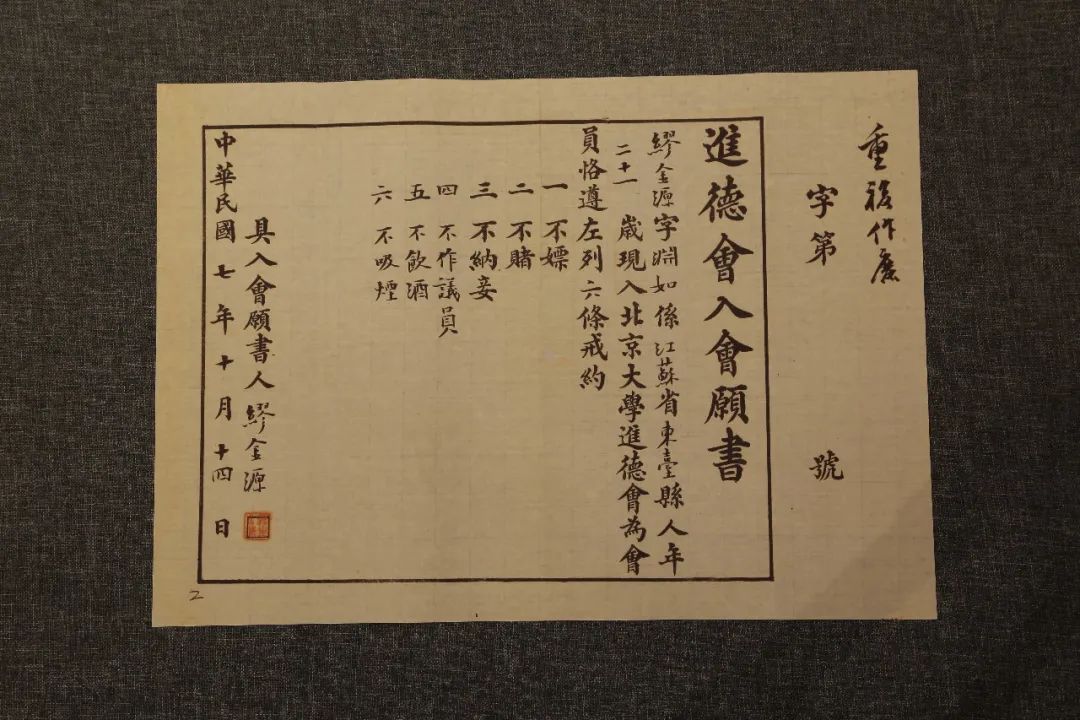 重複作廢
字第 號
進德會入會願書
繆金源字淵如係江蘇省東臺縣人年
二十一歲現入北京大學進德會為會
員恪遵左列六條戒約
一 不嫖
二 不賭
三 不納妾
四 不作議員
五 不飲酒
六 不吸煙
具入會願書人繆金源
中華民國七年十月十四日
2